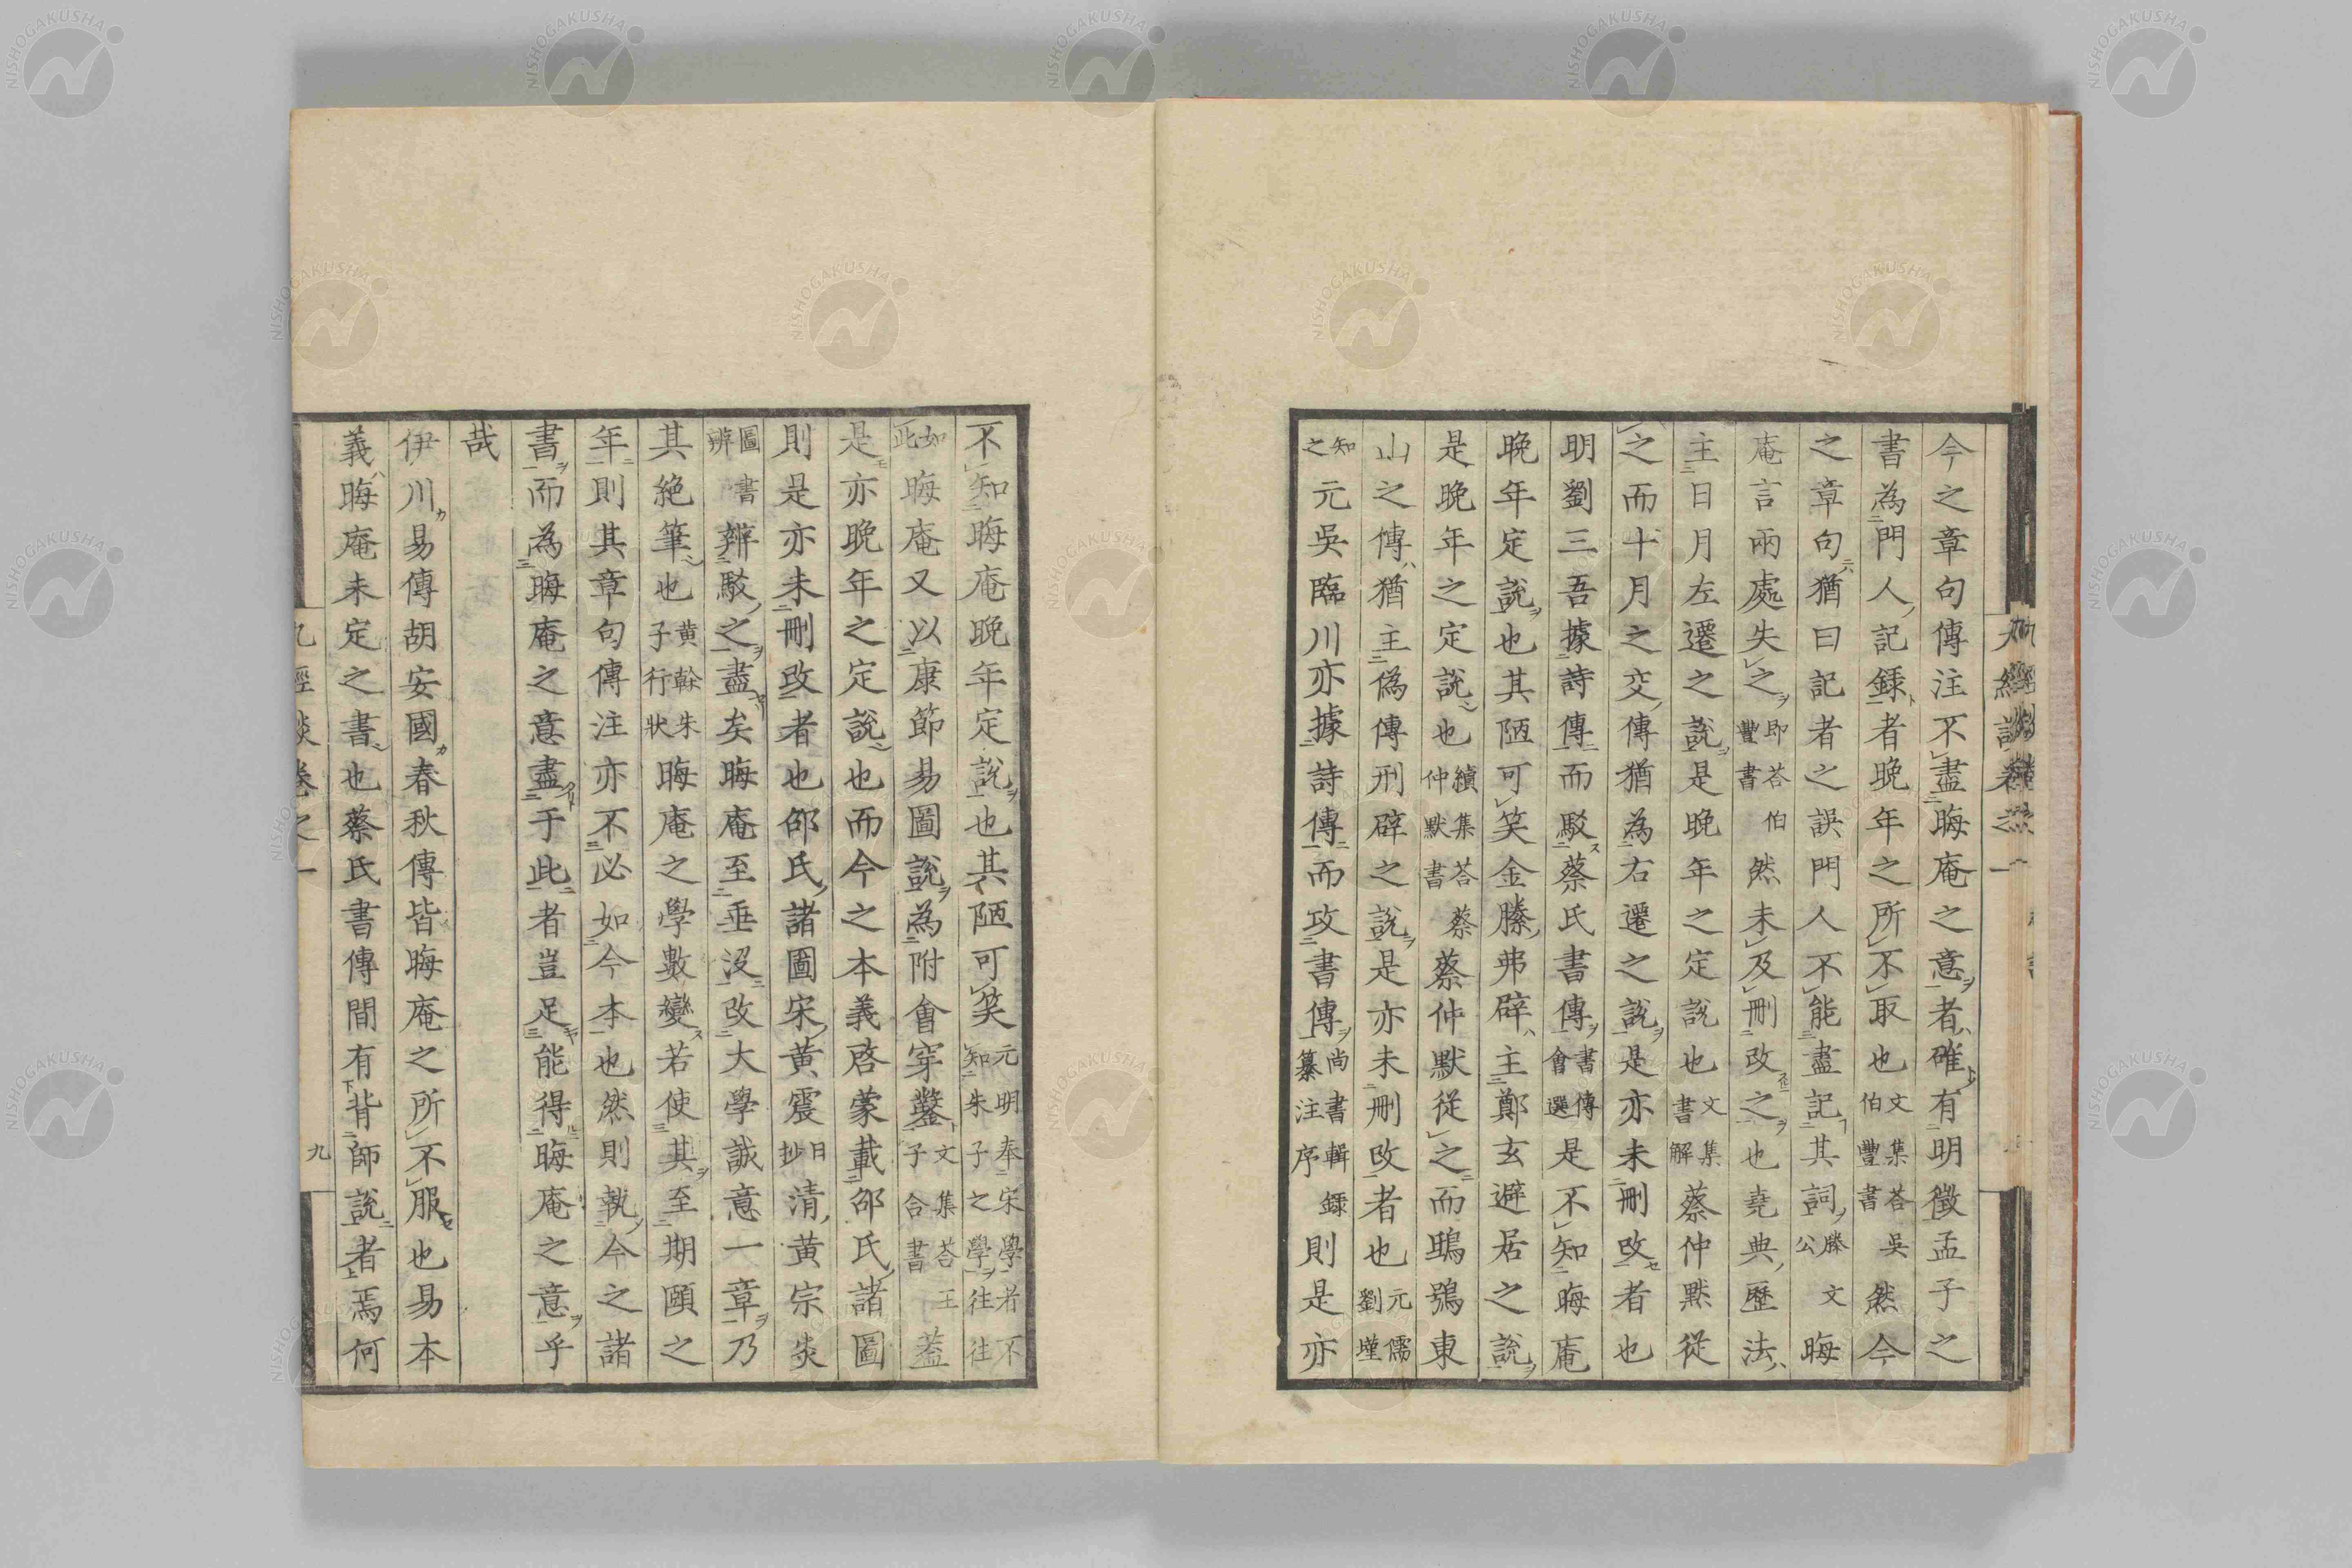 今之章句傳注不盡晦庵之意者確有明徵孟子之
書為門人記録者晩年之所不取也文集荅吳伯豐書然今
之章句猶曰記者之誤門人不能盡記其詞滕文公晦
庵言兩處失之即荅伯豐書然未及刪改之也堯典歷法
主日月左遷之說是晩年之定説也文集書解蔡仲黙從
之而十月之交傳猶為右遷之說是亦未刪改者也
明劉三吾據詩傳而駁蔡氏書傳書傳會選是不知晦庵
晩年定說也其陋可笑金縢弗辟主鄭玄避居之說
是晩年之定說也續集荅蔡仲默書蔡仲默從之而鴟鴞東
山之傳猶主偽傳刑辟之說是亦未刪改者也元儒劉墐
知之元吳臨川亦據詩傳而攻書傳尚書輯録纂注序則是亦
不知晦庵晩年定說也其陋可笑元明奉宋學者不知朱子之學往往
如此晦庵又以康節易圖說為附會穿鑿文集荅王子合書蓋
是亦晩年之定說也而今之本義啓蒙載邵氏諸圖
則是亦未刪改者也邵氏諸圖宋黄震日抄清黄宗炎
圖書辨辨駁之盡矣晦庵至垂没改大學誠意一章乃
其絶筆也黄榦朱子行狀晦庵之學數變若使其至期頤之
年則其章句傳注亦不必如今本也然則執今之諸
書而為晦庵之意盡于此者豈足能得晦庵之意乎
哉
伊川易傳胡安國春秋傳皆晦庵之所不服也易本
義晦庵未定之書也蔡氏書傳間有背師說者焉何
九經談卷之一
九